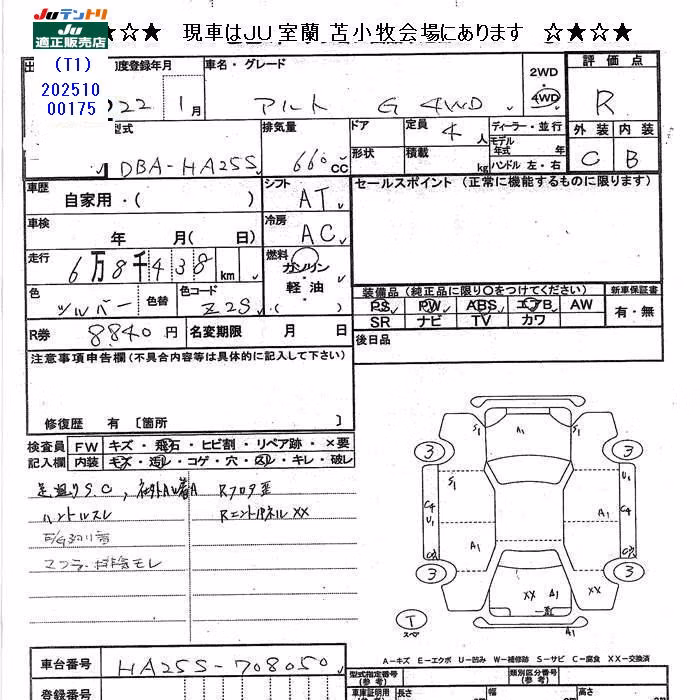 JUテントリ
JU
適正販売店
☆★☆ 現車はJU室蘭 苫小牧会場にあります ☆★☆★
(T1)
202510
00175
初度登録年月
22 1月
車名・グレード
アルト G 4WD
2WD
・
4WD
評価点
R
外装 内装
C B
型式
DBA-HA25S
排気量
660cc
ドア
形状
定員 4人
積載 kg
ディーラー・並行
モデル年式 年
ハンドル 左・右
車歴
自家用・( )
シフト
AT
セールスポイント (正常に機能するものに限ります)
車検
年 月( 日)
冷房
AC
走行
6万8千438km
燃料
ガソリン
・
軽油
・( )
色
シルバー
色替
色コード
Z2S
装備品 (純正品に限り○をつけてください)
新車保証書
PS PW ABS エアB AW
SR ナビ TV カワ
有・無
R券 8840円
名変期限 月 日
後日品
注意事項申告欄(不具合内容等は具体的に記入して下さい)
修復歴 有 [箇所 ]
検査員
記入欄
FW キズ・飛石・ヒビ割・リペア跡・×要
内装 キズ・汚レ・コゲ・穴・スレ・キレ・破レ
足廻りS.C
Rフロア歪
ハンドルスレ
RエンドパネルXX
マフラー排気モレ
S1 A1 S1
3 3
S1 A1
C4 U1
A1 A1
C4 U1
3 3
XX A1 XX
T
スペア
A1
A-キズ E-エクボ U-凹み W-補修跡 S-サビ C-腐食 XX-交換済
車台番号 HA25S-708050
登録番号
型式指定番号
(参考)
類別区分番号
(参考)
車庫証明用
長さ 幅 高さ